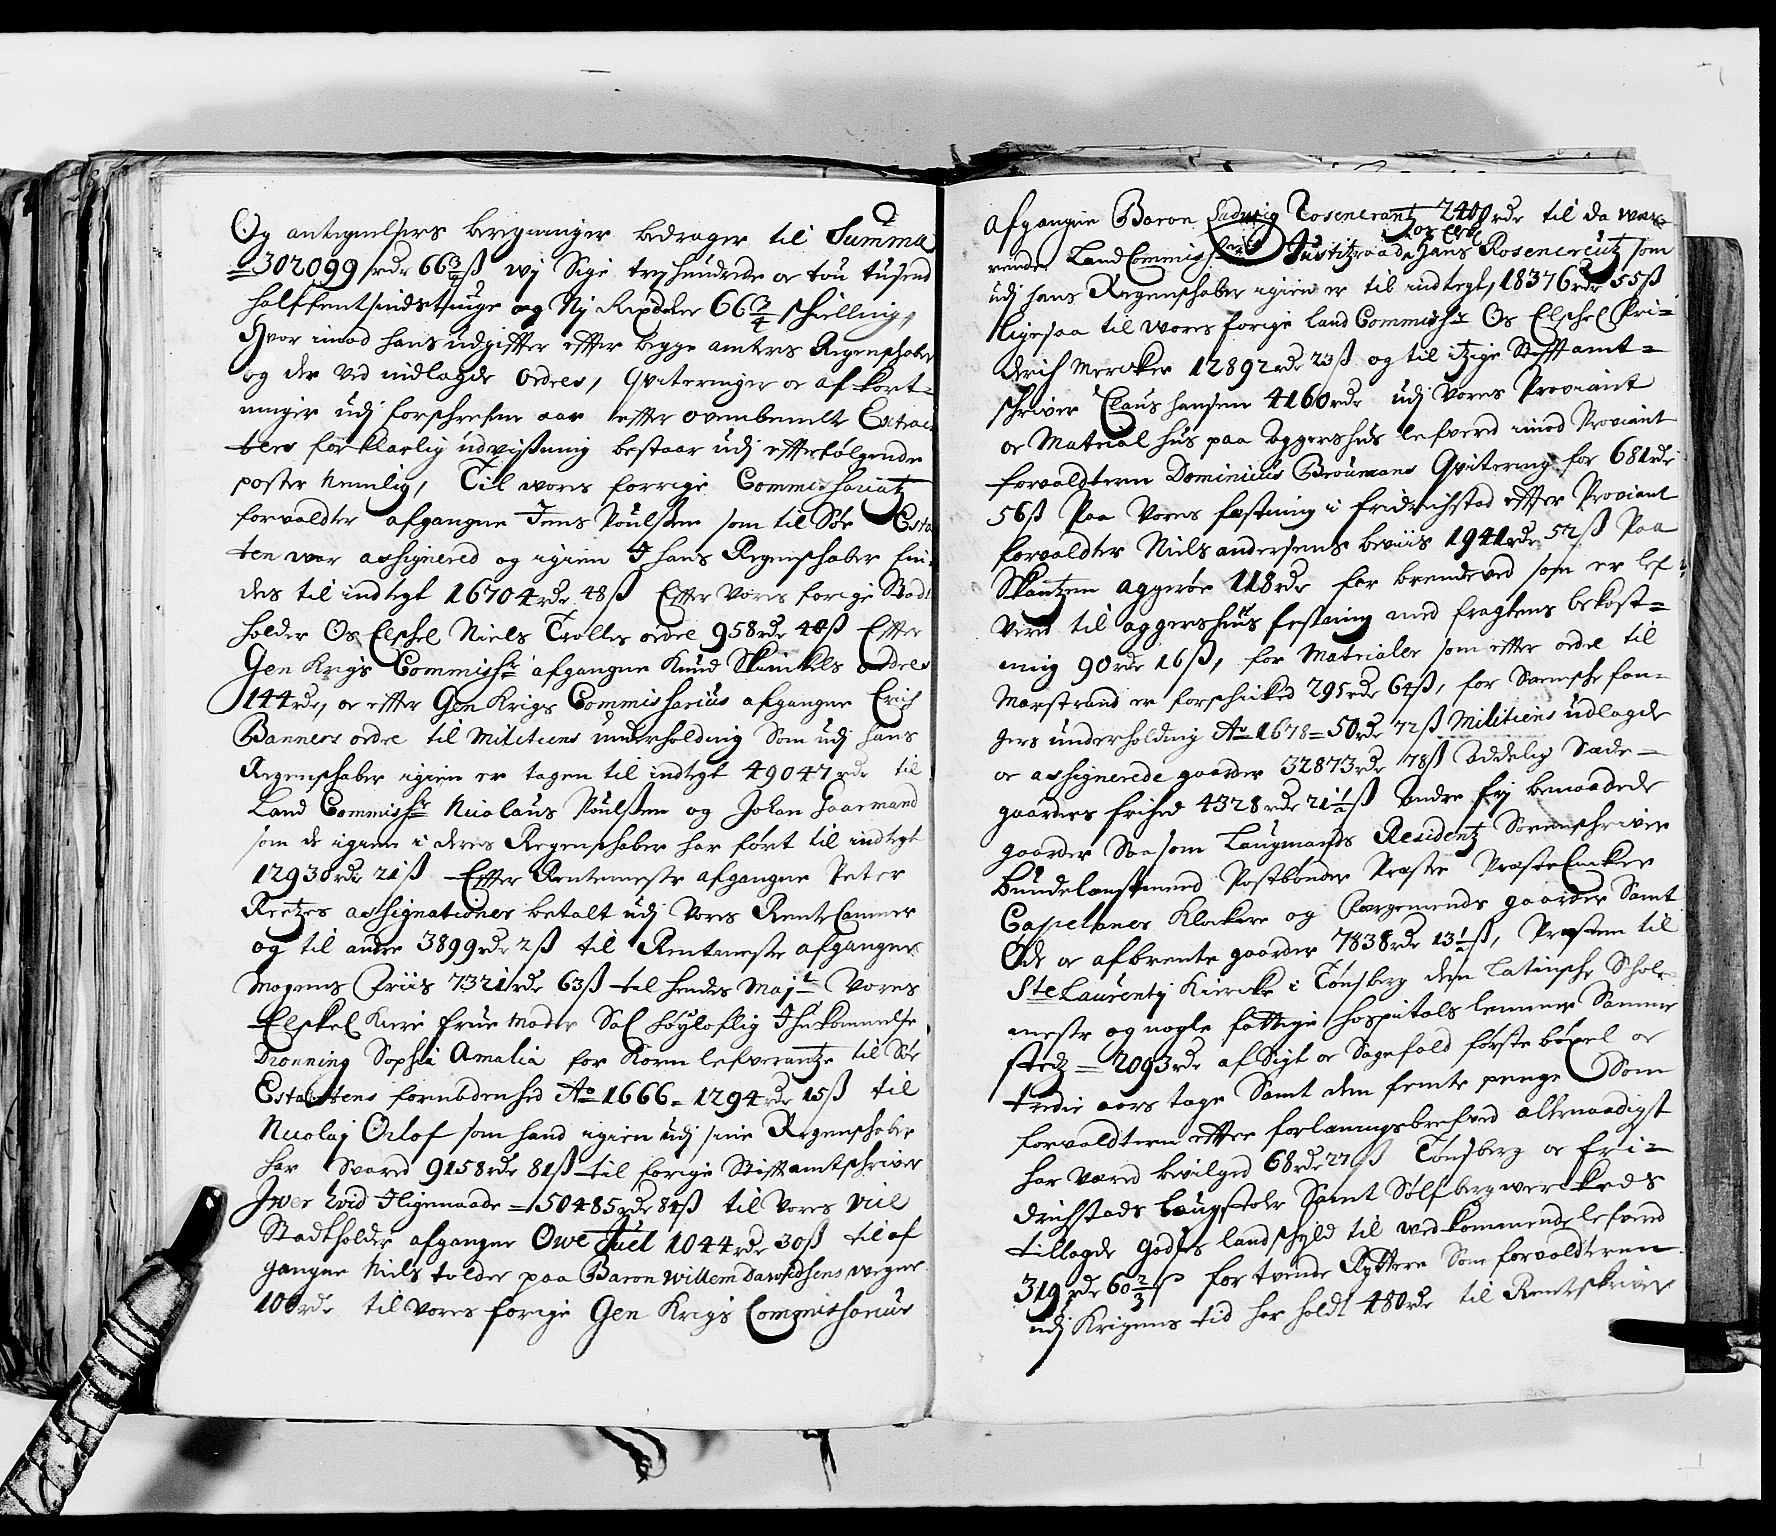 Og antegnelsers beregninger bedrager til Summa
=302099 rdr 66 3/4 ß wj Sige tryhundrede oc tou tusend
halffemtesindstiuge og Nj Rixdaler 66 3/4 skielling,
Hvor imod hans udgiffter effter begge amters Regenschaber
og der ved indlagde ordres, Qviteringer oc afkort-
ninger udj forschrefne aar effter ovenbemelte Extrac-
ters forklarlig udvißning bestaar udj effterfølgende
poster Nemlig, Til vores forrige Commissariatz
forvaldter afgangne Jens Poulßen som til Søe Esta
ten var assignered og igien I hans Regenschaber fin-
des til indtegt 16704 rdr 48 ß Effter Vores forige Stadt
holder Os Elschel Niels Trolles ordre 958 rdr 48 ß Effter
Gen Krigs Commissr afgangne Knud Skinckels ordre
144 rdr, oc effter Gen Krigs Commissarius afgangne Erich
Banners ordre til Militiens underholding Som udj hans
Regenschaber igien er tagen til indtegt 49047 rdr til
Land Commissr Nicolaus Poulßen og Johan Gaarmand
som de igien i deres Regenschaber har ført til indtegt
12930 rdr 21 ß Effter Rentemester afgangne Peter
Reetzes assignationer betalt udj Vores RenteCammer
og til andre 3899 rdr 2 ß til Rentemester afgangne
Mogens Friis 7321 rdr 63 ß til hendes Majt Vores
Elskel Kiere Frue Moder Sal Høyloflig Ihukommelse
Dronning Sophia Amalia for Korn lefverantze til Søe
Estatens fornødenhed Ao 1666 - 1294 rdr 15 ß til
Nicolaj Orlof som hand igien udj sine Regenschaber
har Svared 9158 rdr 81 ß til forige Stiffamtschriver
Iver Hvid Iligemaade = 50485 rdr 84 ß til Vores Viil
Stadtholder afgangne Owe Juel 1044 rdr 30 ß til af
gangne Niels tolder paa Baron Willem Dawidsens wegne
100 rdr til Vores forige Gen Krigs Commissarius
afgangne Baron Ludwig Rosencrantz 2400 rdr til da wæ-
rende LandCommissarie Justitzraad os Elsk Hans Rosencreutz som
udj hans Regenschaber igien er til indtegt, 18376 rdr 55 ß
ligesaa til vores forige land Commissr Os Elschel Fri-
derich Mercker 12892 rdr 23 ß og til itzige Stiffamt-
schriver Claus Hansen 4160 rdr udj Vores Proviant
oc Material hus paa Aggershus lefvered imod Proviant
forvaldteren Dominicus Broumans Qvitering for 681 rdr
56 ß Paa Vores fæstning i Fridrichstad effter Proviant
forvaldter Niels andersens beviis 1941 rdr 52 ß Paa
Skantzen aggerøe 118 rdr for brendeved som er lef-
vered til aggershuus festning med fragtens bekost-
ning 90 rdr 16 ß, for Materialer som effter ordre til
Marstrand er forschicked 295 rdr 64 ß, for Svensche fan-
gers underholding Ao 1678 = 50 rdr 72 ß Militiens udlagde
oc assignerede gaarder 32873 rdr 78 ß Addelig Sæde-
gaarders frihed 4328 rdr 21 1/2 ß Andre frj benaadede
gaarder Saasom Laugmands Residentz Sorenschriver
Bundelensmend Postbønder Præster PræsteEncker
Capelaner Klockere og færgemends gaarder Samt
Øde oc afbrente gaarder 7838 rdr 13 1/2 ß, Præsten til
Ste Laurentj Kiercke i Tønsberg den Latinsche Schole
mester og nogle fattige hospitals lemmer Samme
stedz = 2093 rdr af Sigt oc Sagefald første bøxel oc
tredie aars tage Samt den femte penge Som
forvaldteren effter forleningsbrefved allernaadigst
har været bevilged 68 rdr 27 ß Tønsberg oc Fri-
drichstads laugstoler Samt Sølfbergwerckeds
tillagde godses landschyld til vedkommende lefvered
319 rdr 60 2/3 ß for tvende Ryttere Som forvaldteren
udj Krigens tid har holdt 480 rdr til Rentskriver